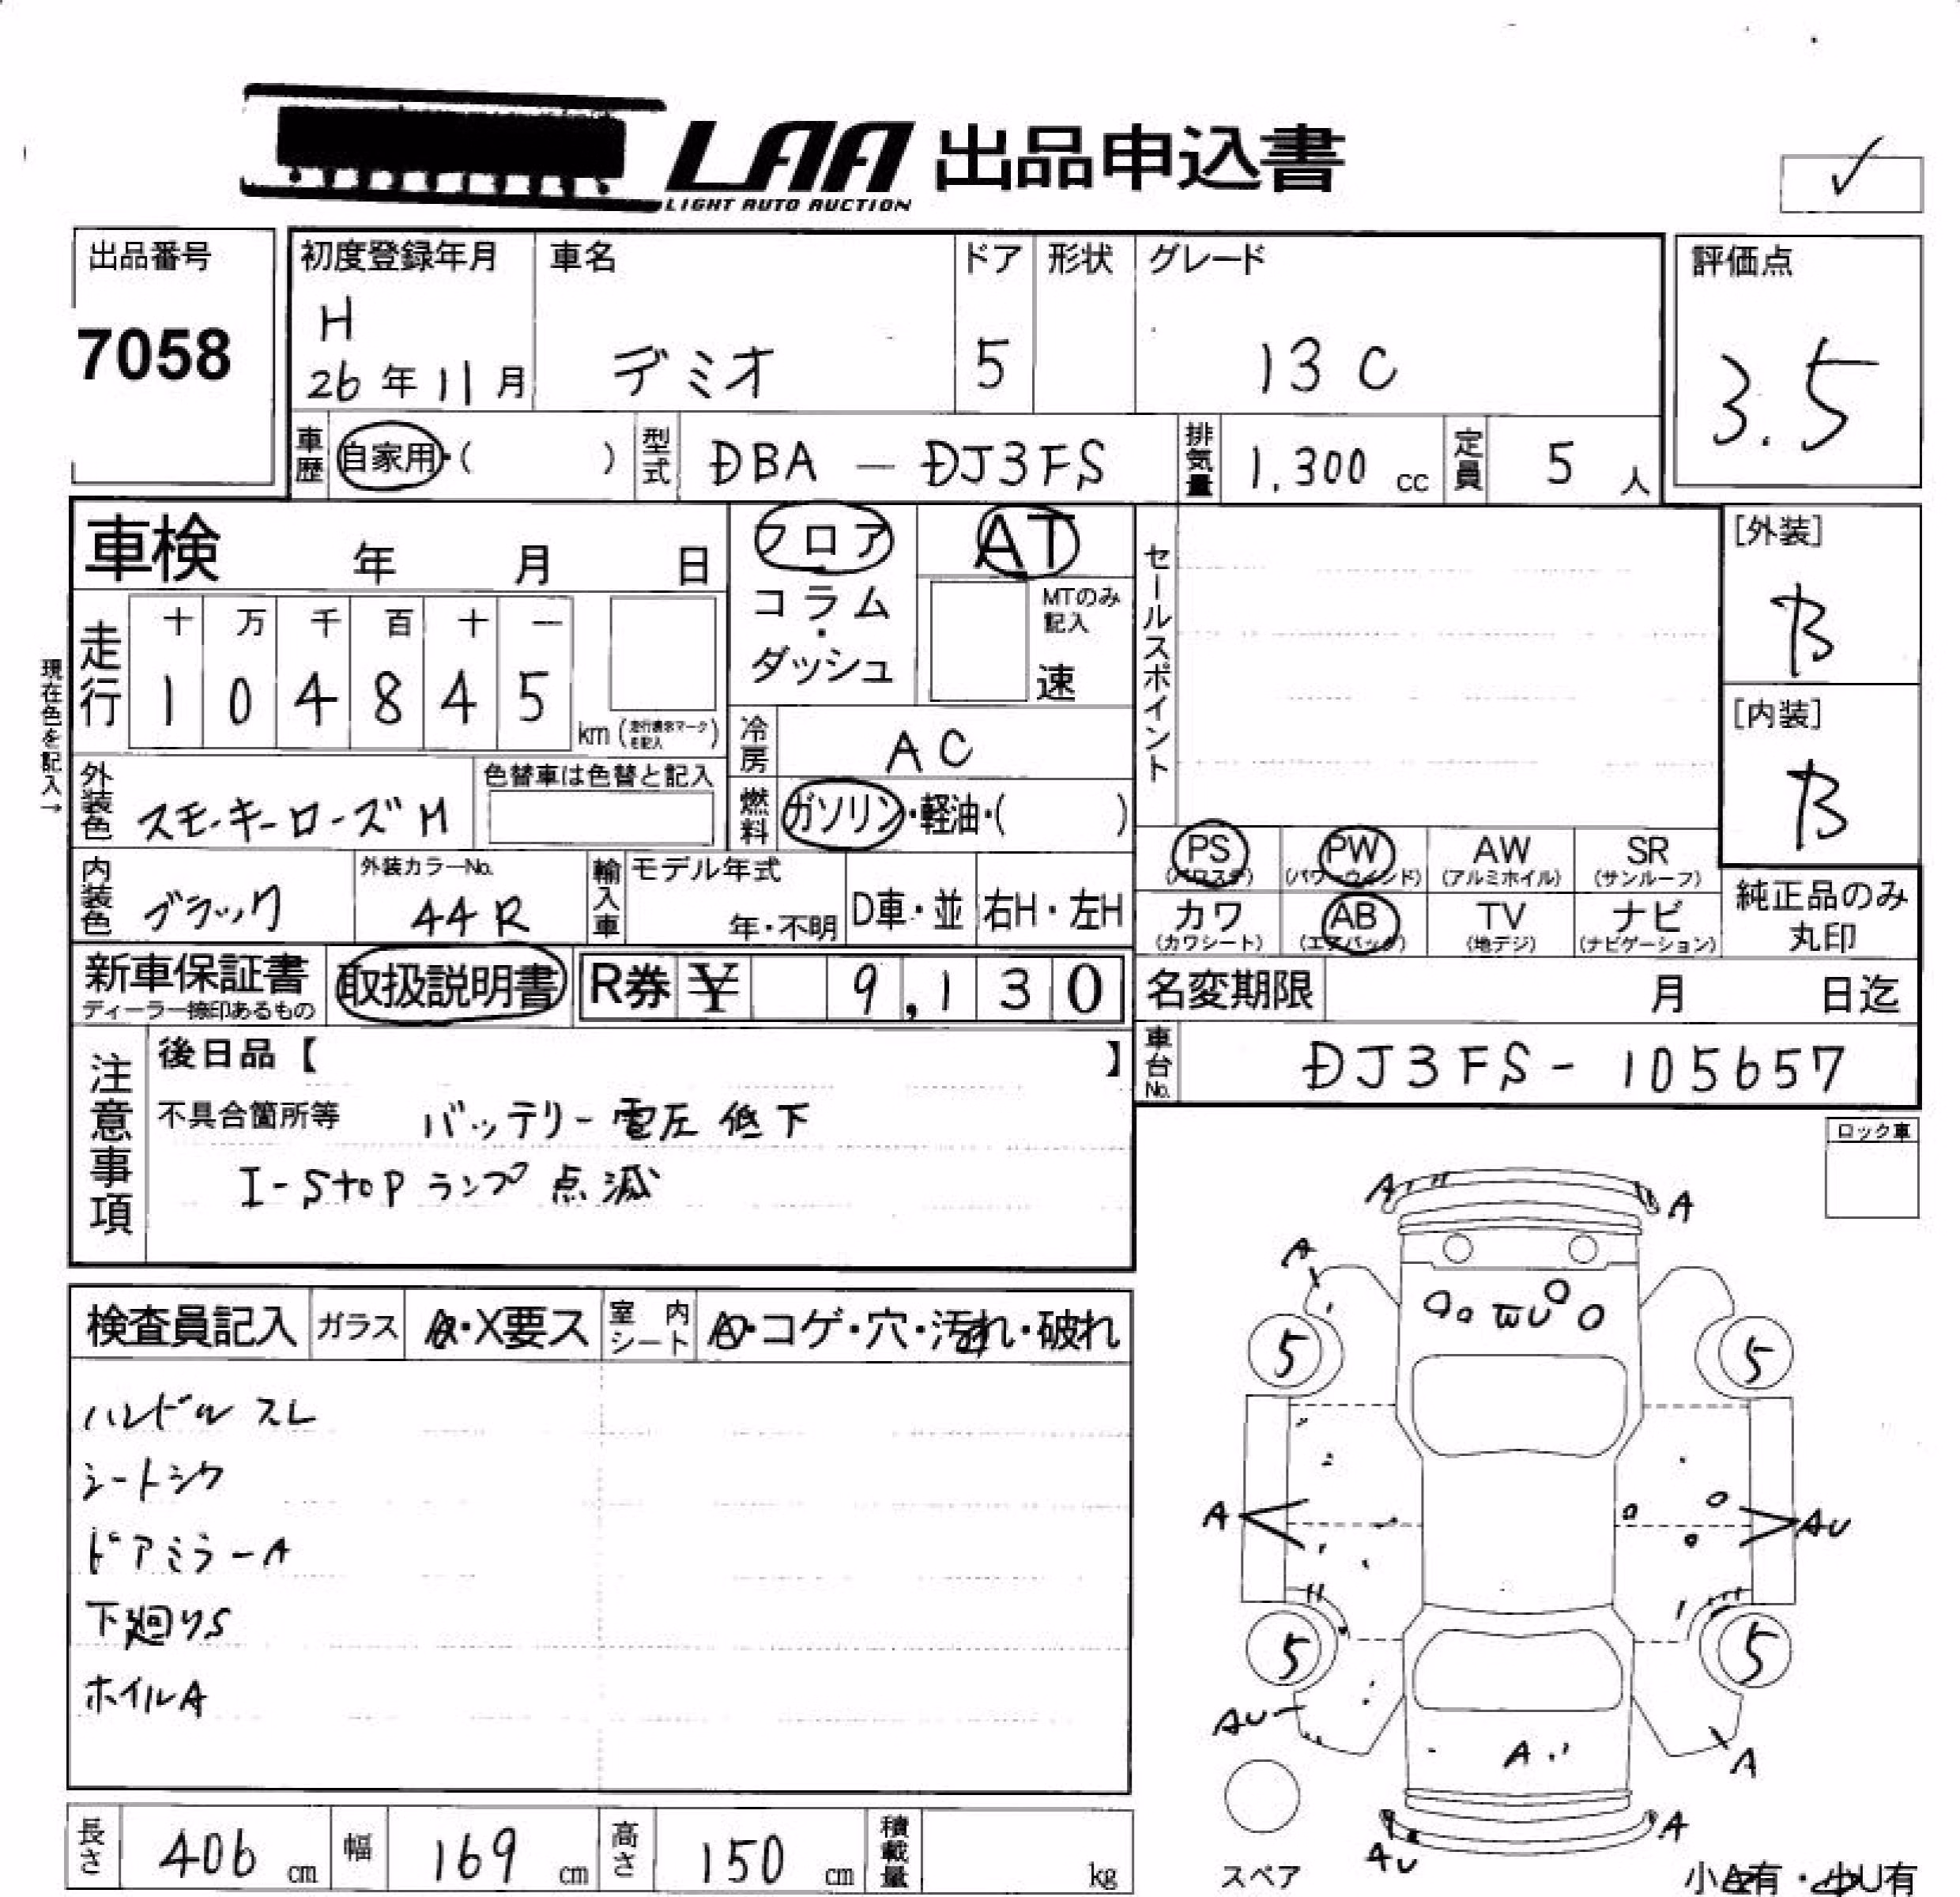 LAA 出品申込書
LIGHT AUTO AUCTION
✓
出品番号
7058
初度登録年月
H
26年11月
車名
デミオ
ドア
5
形状
グレード
13C
評価点
3.5
車歴 自家用・( )
型式 DBA-DJ3FS
排気量 1,300 cc
定員 5人
車検 年 月 日
フロア
コラム・ダッシュ
AT
MTのみ記入
速
セールスポイント
[外装]
B
[内装]
B
現在色を記入→
走行
十 万 千 百 十 一
1 0 4 8 4 5
km
冷房 AC
外装色 スモーキーローズM
色替車は色替と記入
燃料 ガソリン・軽油・( )
内装色 ブラック
外装カラーNo.
44R
輸入車
モデル年式
年・不明
D車・並
右H・左H
PS (パワステ)
PW (パワーウィンド)
AW (アルミホイル)
SR (サンルーフ)
カワ (カワシート)
AB (エアバック)
TV (地デジ)
ナビ (ナビゲーション)
純正品のみ
丸印
新車保証書
ディーラー捺印あるもの
取扱説明書
R券 ¥ 9,130
名変期限 月 日迄
車台No. DJ3FS-105657
注意事項
後日品【 】
不具合箇所等 バッテリー電圧低下
I-Stopランプ点滅
ロック車
検査員記入
ガラス A・X要ス
室内シート
・コゲ・穴・汚れ・破れ
ハンドルスレ
シートシワ
ドアミラーA
下廻りS
ホイルA
A
A
A
5
5
A
AU
5
5
AU
A
A
A
AU
スペア
小A有・小U有
長さ 406 cm
幅 169 cm
高さ 150 cm
積載量 kg